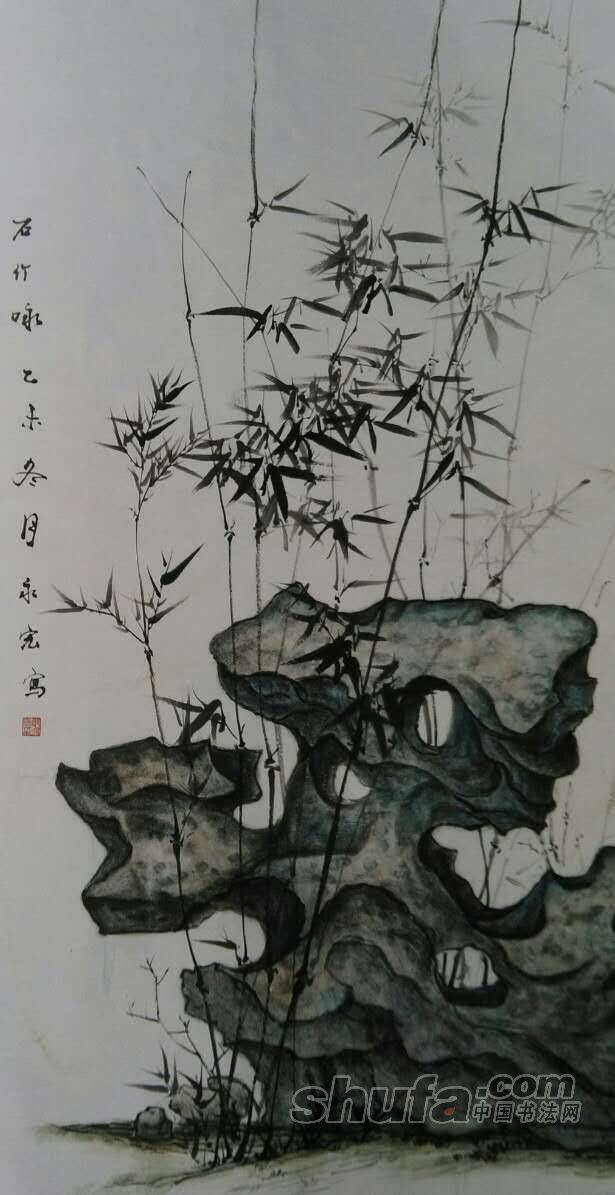 石竹咏 乙未冬月 永宏写
shufa.com
中国书法网